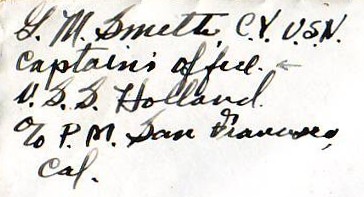 G. M. Smith, C.Y. U.S.N.
Captain's office.
U.S.S. Holland
c/o P.M. San Francisco,
Cal.